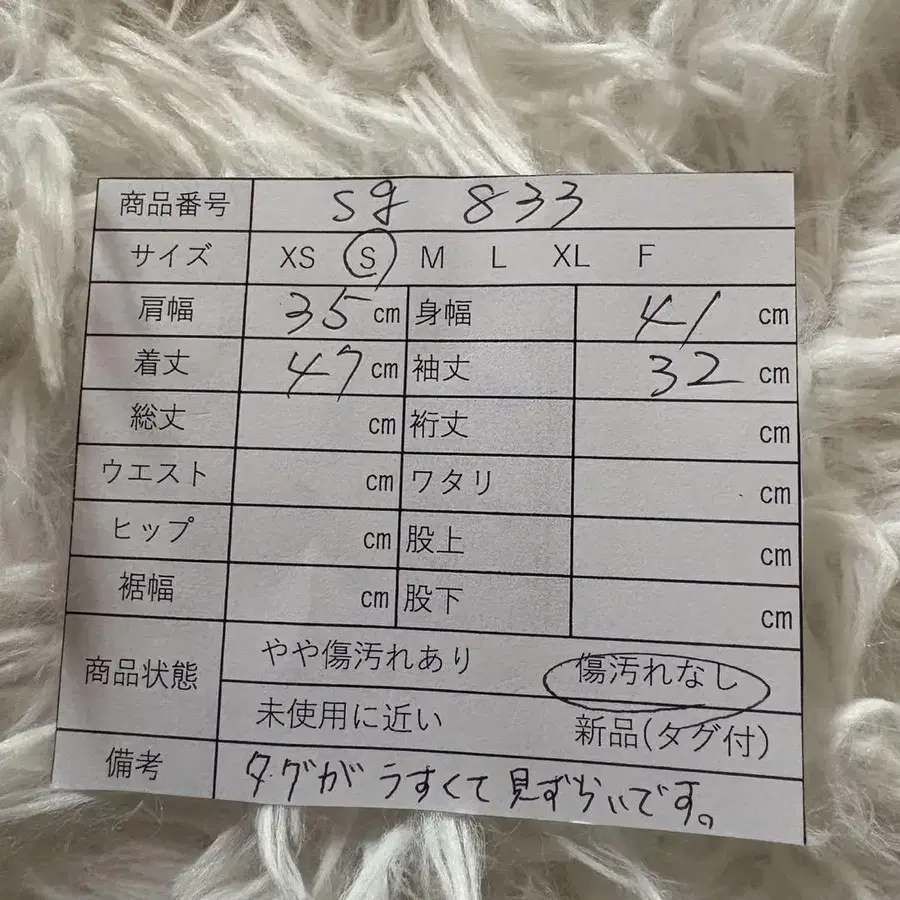 商品番号 sg 833
サイズ XS S M L XL F
肩幅 35 cm 身幅 41 cm
着丈 47 cm 袖丈 32 cm
総丈 cm 裄丈 cm
ウエスト cm ワタリ cm
ヒップ cm 股上 cm
裾幅 cm 股下 cm
商品状態 やや傷汚れあり 傷汚れなし
未使用に近い 新品(タグ付)
備考 タグがうすくて見ずらいです。